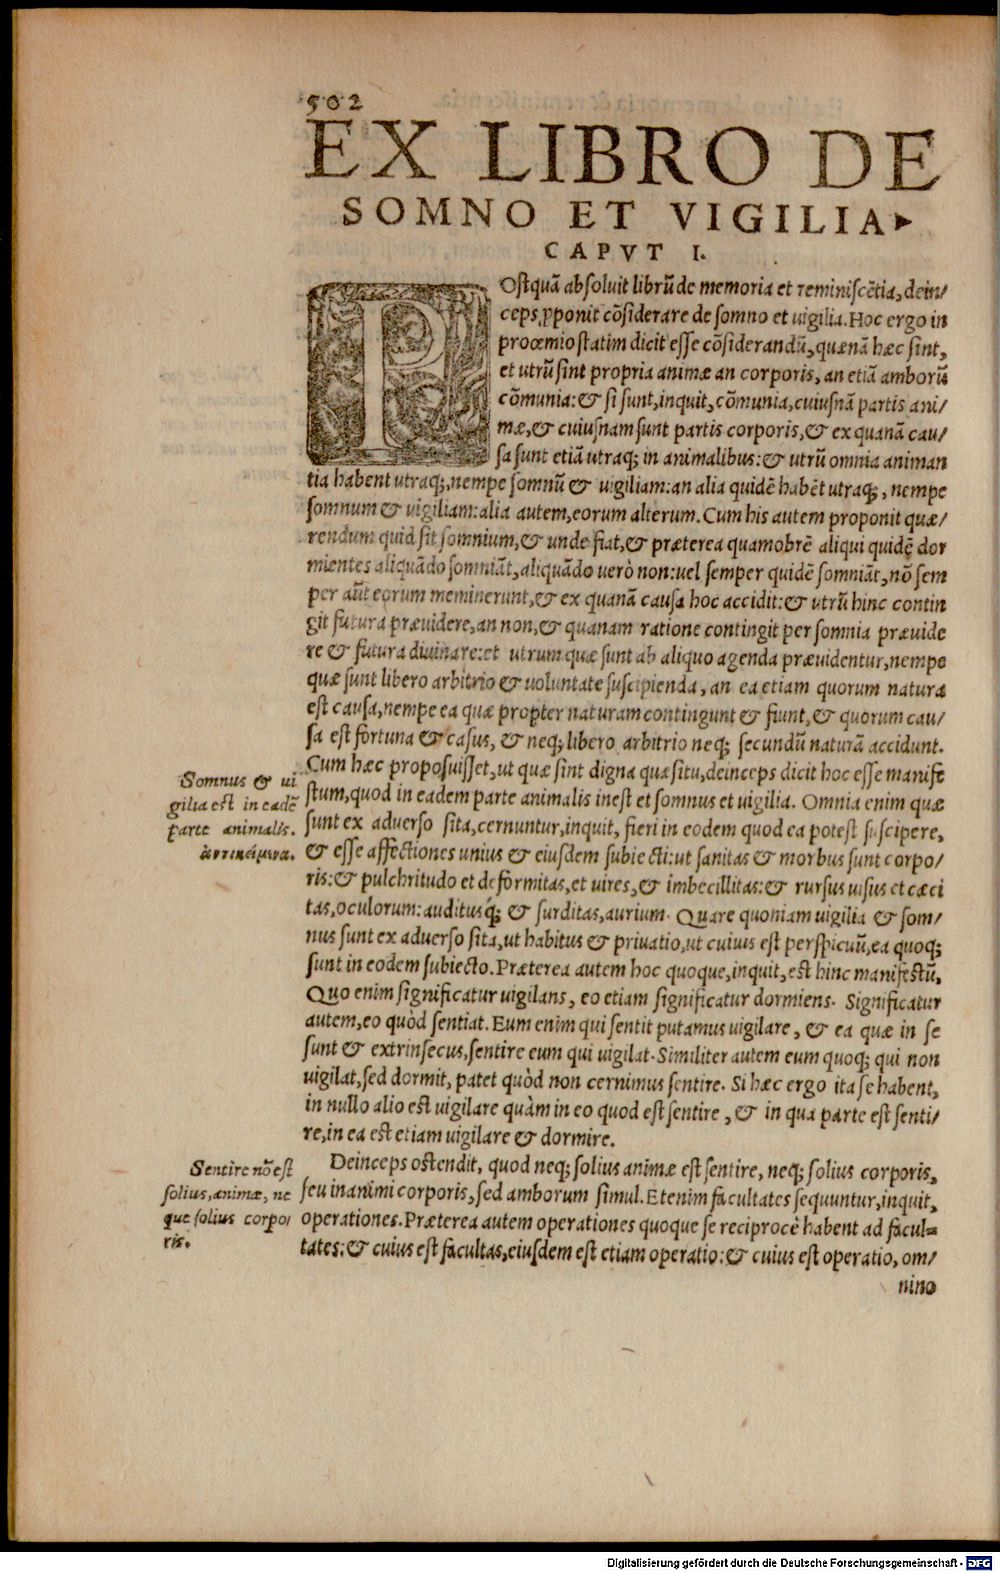 502
EX LIBRO DE
SOMNO ET VIGILIA
CAPVT I.
POstquā absoluit librū de memoria et reminiscētia, dein/
ceps, ꝓponit cōsiderare de somno et uigilia. Hoc ergo in
proœmio statim dicit esse cōsiderandū, quænā hæc sint,
et utrū sint propria animæ an corporis, an etiā amborū
cōmunia: & si sunt, inquit, cōmunia, cuiusnā partis ani/
mæ, & cuiusnam sunt partis corporis, & ex quanā cau/
sa sunt etiā utraq; in animalibus: & utrū omnia animan
tia habent utraq;, nempe somnū & uigiliam: an alia quidē habēt utraq;, nempe
somnum & uigiliam: alia autem, eorum alterum. Cum his autem proponit quæ/
rendum quid sit somnium, & unde fiat, & præterea quamobrē aliqui quidē dor
mientes aliquādo somniāt, aliquādo uerò non: uel semper quidē somniāt, nō sem
per aūt eorum meminerunt, & ex quanā causa hoc accidit: & utrū hinc contin
git futura præuidere, an non, & quanam ratione contingit per somnia præuide
re & futura diuinare: et utrum quæ sunt ab aliquo agenda præuidentur, nempe
quæ sunt libero arbitrio & uoluntate suscipienda, an ea etiam quorum natura
est causa, nempe ea quæ propter naturam contingunt & fiunt, & quorum cau/
sa est fortuna & casus, & neq; libero arbitrio neq; secundū naturā accidunt.
Cum hæc proposuisset, ut quæ sint digna quæsitu, deinceps dicit hoc esse manife
stum, quod in eadem parte animalis inest et somnus et uigilia. Omnia enim quæ
sunt ex aduerso sita, cernuntur, inquit, fieri in eodem quod ea potest suscipere,
& esse affectiones unius & eiusdem subiecti: ut sanitas & morbus sunt corpo/
ris: & pulchritudo et deformitas, et uires, & imbecillitas: & rursus uisus et cæci
tas, oculorum: auditusq́; & surditas, aurium. Quare quoniam uigilia & som/
nus sunt ex aduerso sita, ut habitus & priuatio, ut cuiuis est perspicuū, ea quoq;
sunt in eodem subiecto. Præterea autem hoc quoque, inquit, est hinc manifestū.
Quo enim significatur uigilans, eo etiam significatur dormiens. Significatur
autem, eo quòd sentiat. Eum enim qui sentit putamus uigilare, & ea quæ in se
sunt & extrinsecus, sentire eum qui uigilat. Similiter autem eum quoq; qui non
uigilat, sed dormit, patet quòd non cernimus sentire. Si hæc ergo ita se habent,
in nullo alio est uigilare quàm in eo quod est sentire, & in qua parte est senti/
re, in ea est etiam uigilare & dormire.
Somnus & ui
gilia est in eadē
parte animalis.
ἀντικείμενα.
Deinceps ostendit, quod neq; solius animæ est sentire, neq; solius corporis,
seu inanimi corporis, sed amborum simul. Etenim facultates sequuntur, inquit,
operationes. Præterea autem operationes quoque se reciprocè habent ad facul=
tates: & cuius est facultas, eiusdem est etiam operatio: & cuius est operatio, om/
nino
Sentire nō est
solius, animæ, ne
que solius corpo/
ris.
Digitalisierung gefördert durch die Deutsche Forschungsgemeinschaft - DFG